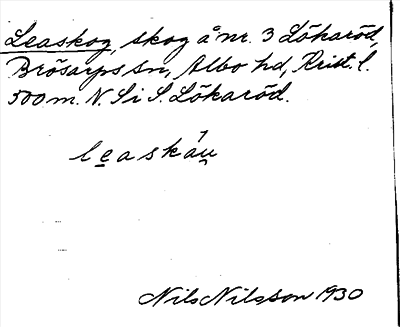 Leaskog, skog å nr. 3 Lökaröd,
Brösarps sn, Albo hd, Krist. l.
500 m. N. S i S. Lökaröd.
leaskáu̯
Nils Nilsson 1930